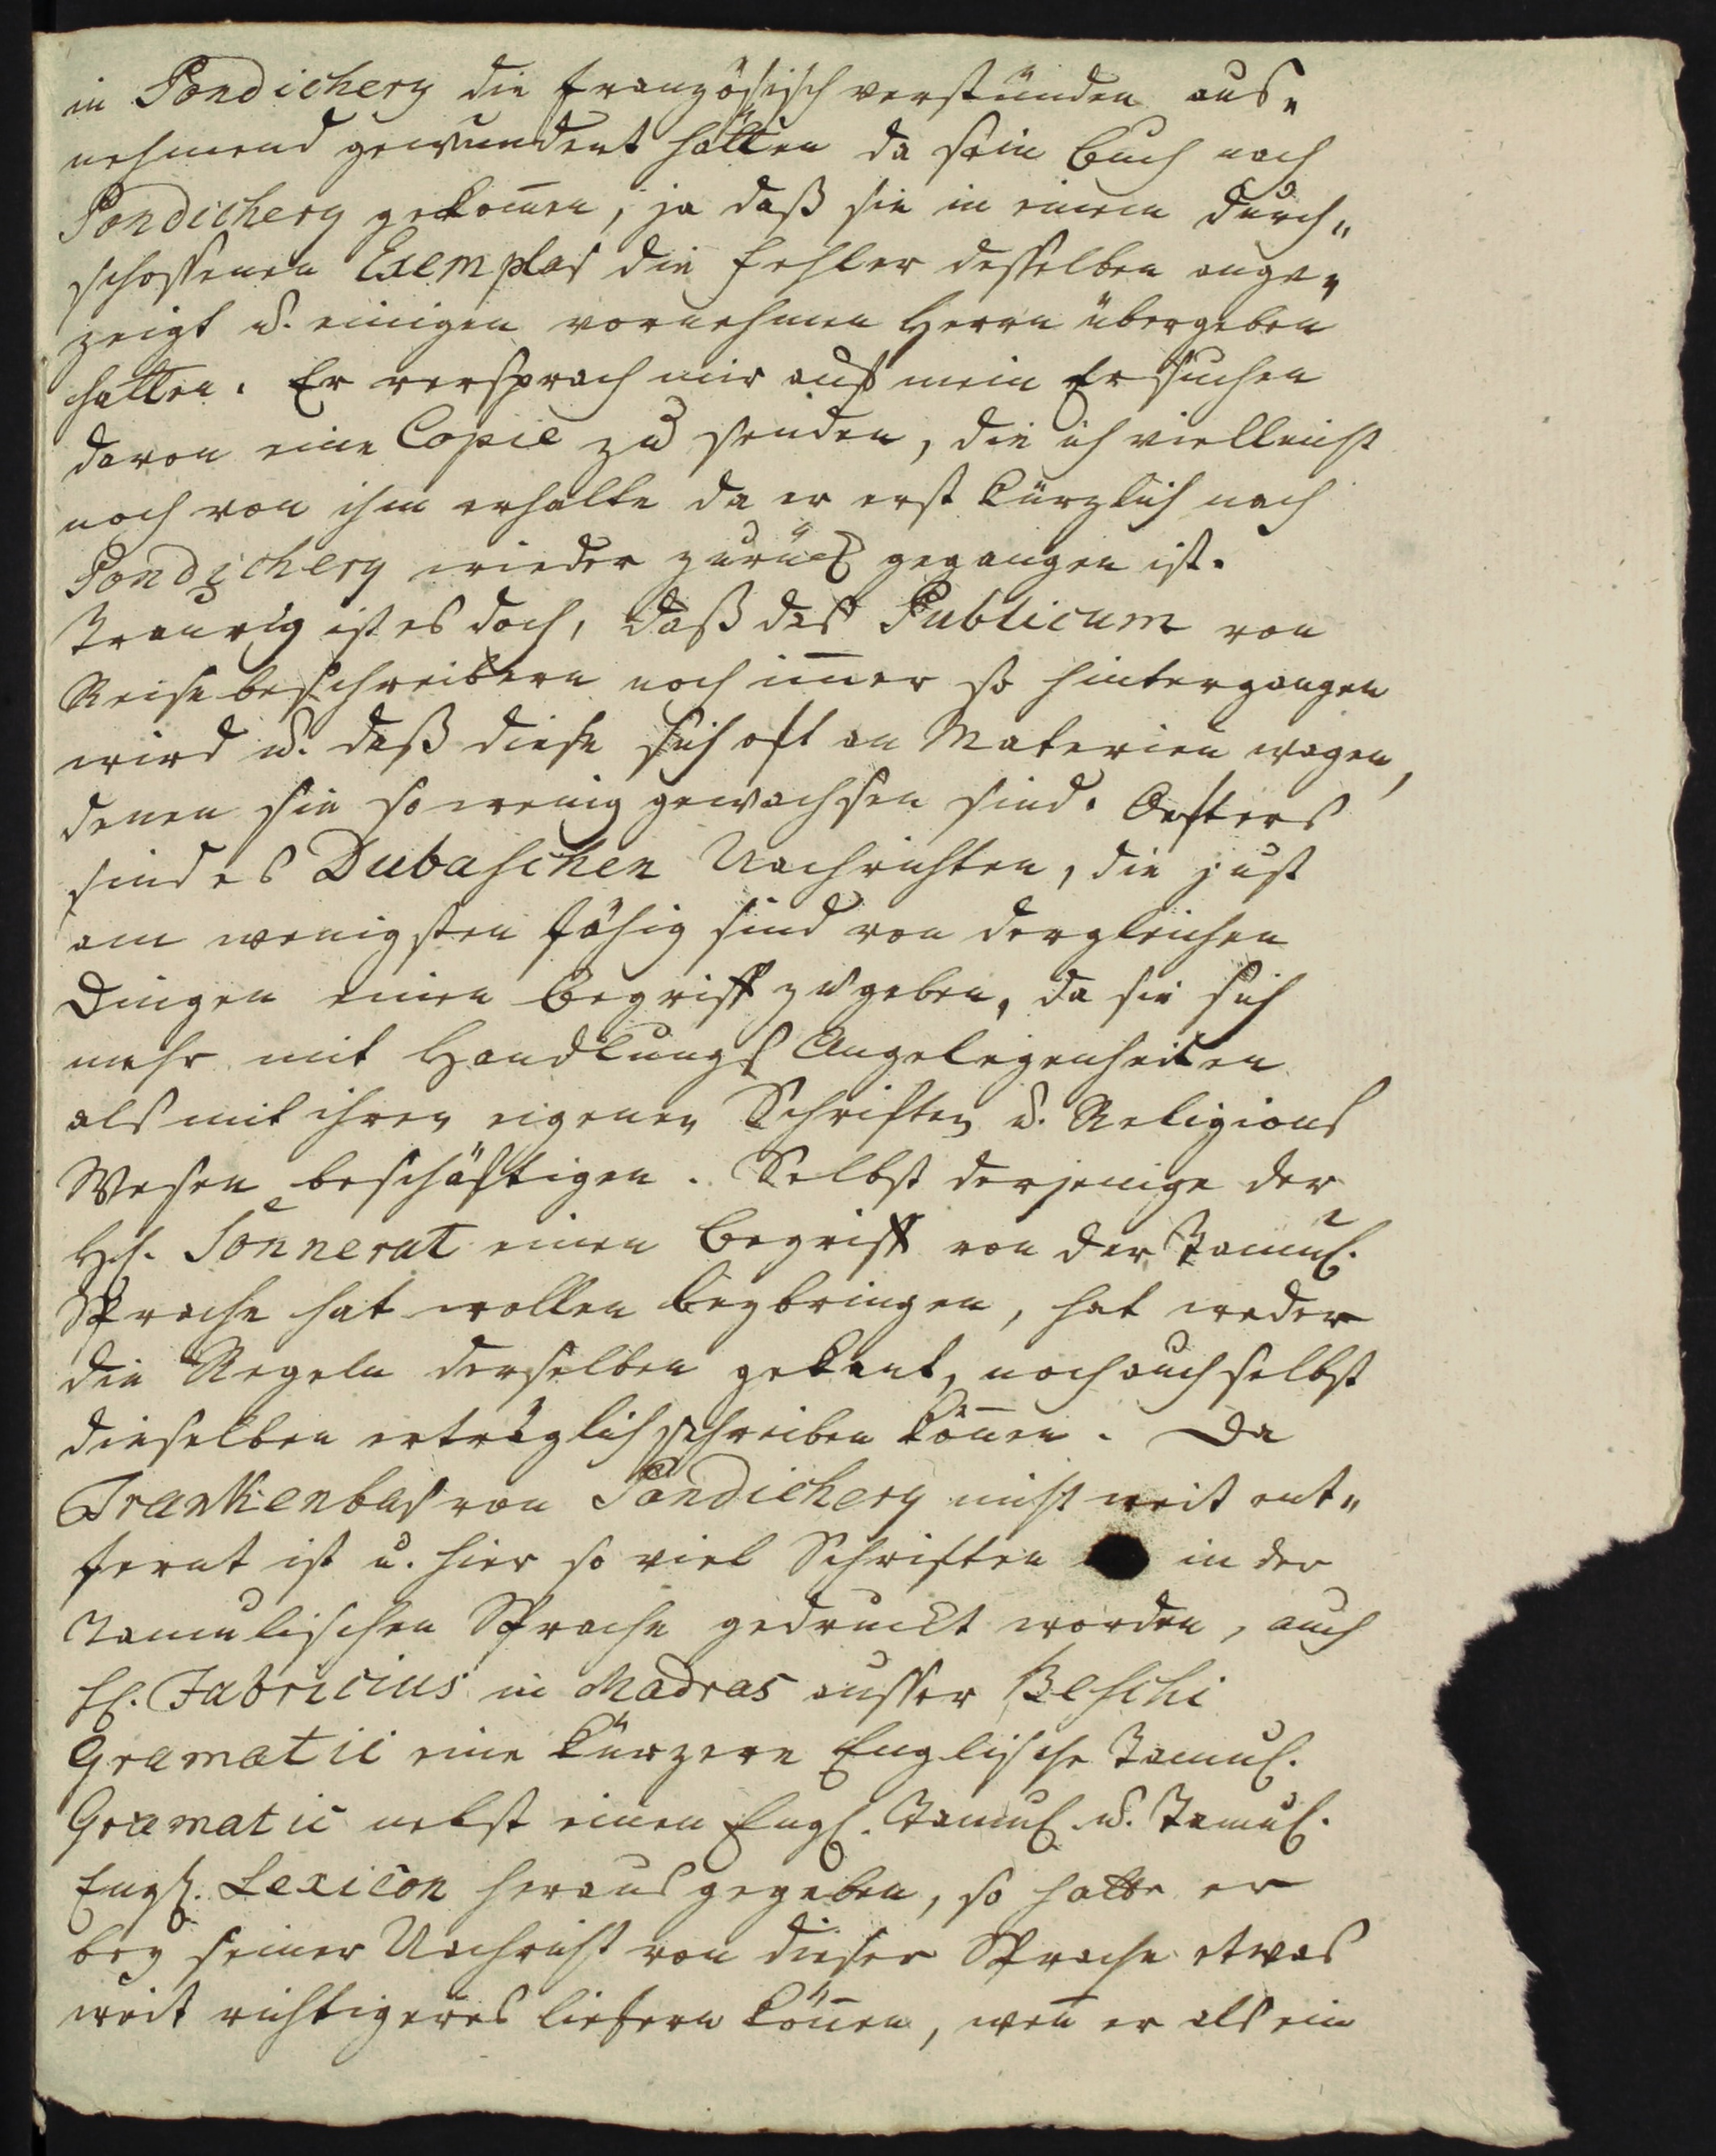 in Pondichery die französisch verstünden aus„
nehmend gewundert hätten da sein Buch nach
Pondichery gekom̅en, ja daß sie in einem durch„
schossenen Exemplar die Fehler desselben ange„
zeigt u. einigen vornehmen Herrn übergeben
hätten. Er versprach mir auf mein Ersuchen
davon eine Copie zu senden, die ich vielleicht
noch von ihm erhalte da er erst kürzlich nach
Pondichery wieder zurück gegangen ist.
Traurig ist es doch, daß das Publicum von
Reisebeschreibern noch im̅er so hintergangen
wird u. daß diese sich oft an Materien wagen,
denen sie so wenig gewachsen sind. Oefters
sind es Dubaschen Nachrichten, die just
am wenigsten fähig sind von dergleichen
Dingen einen Begriff zu geben, da sie sich
mehr mit Handlungs Angelegenheiten
als mit ihren eigenen Schriften u. Religions
Wesen beschäftigen. Selbst derjenige der
HE. Sonnerat einen Begriff von der Tamul.
Sprache hat wollen beybringen, hat weder
die Regeln derselben gekant, noch auch selbst
dieselben erträglich schreiben kön̅en. Da
Trankenbar von Pondichery nicht weit ent„
fernt ist u. hier so viel Schriften in der
Tamulischen Sprache gedruckt worden, auch
H. Fabricius in Madras ausser Beschi
Gramatic eine kürzere Englische Tamul.
Gramatic nebst einen Engl. Tamul. u. Tamul.
Engl. Lexicon heraus gegeben, so hätte er
bey seiner Nachricht von dieser Sprache etwas
weit richtigeres liefern kön̅en, wen̅ er als ein